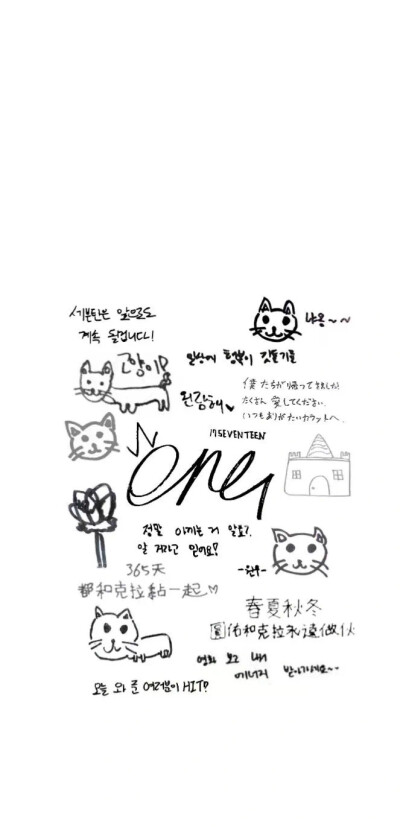 세븐틴은 앞으로도
계속 달립니다!
냐옹~~
고양이
일상에 행복이 깃들기를
원광해♥
僕たちが帰ってきました
たくさん愛してください。
いつもありがたいカラットへ
17 SEVENTEEN
정말 아끼는 거 알죠?
알 거라고 믿어요?
-원우-
365天
都和克拉黏一起♡
春夏秋冬
圓佑和克拉永遠做伙
영화 보고 내
에너지 받아가세요~~
오늘 와 준 여러분이 HIT!